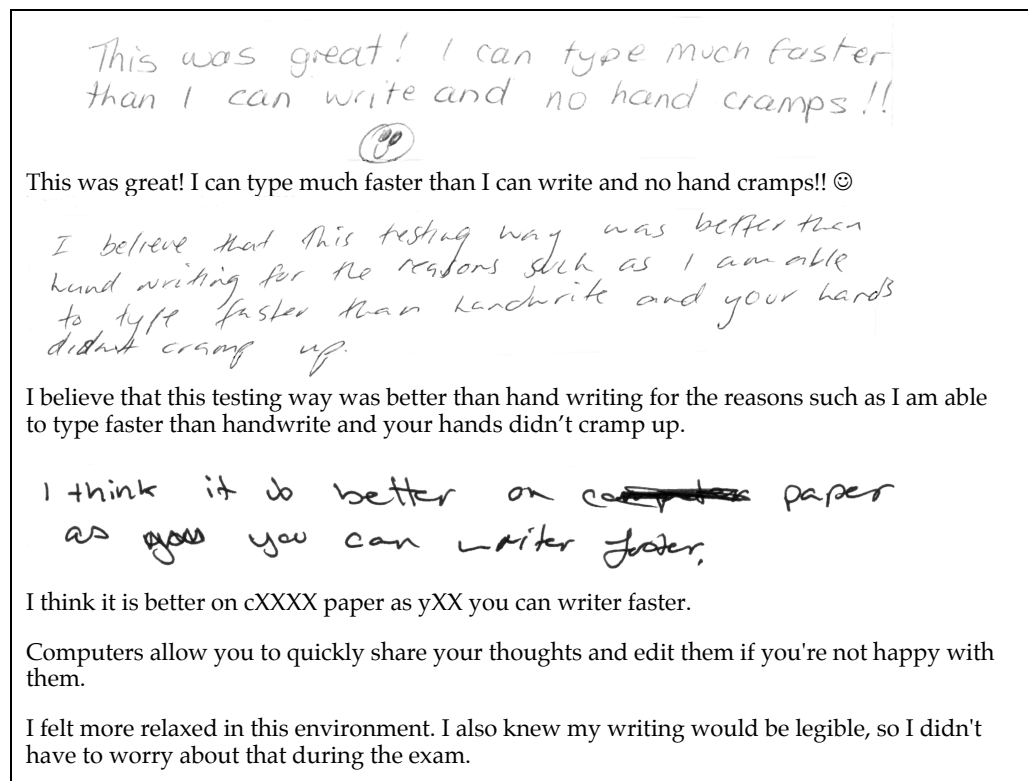 This was great! I can type much faster
than I can write and no hand cramps!!
This was great! I can type much faster than I can write and no hand cramps!! ☺
I believe that this testing way was better than
hand writing for the reasons such as I am able
to type faster than handwrite and your hands
didnt cramp up.
I believe that this testing way was better than hand writing for the reasons such as I am able
to type faster than handwrite and your hands didn't cramp up.
I think it is better on paper
as you can writer faster.
I think it is better on cXXXX paper as yXX you can writer faster.
Computers allow you to quickly share your thoughts and edit them if you're not happy with
them.
I felt more relaxed in this environment. I also knew my writing would be legible, so I didn't
have to worry about that during the exam.